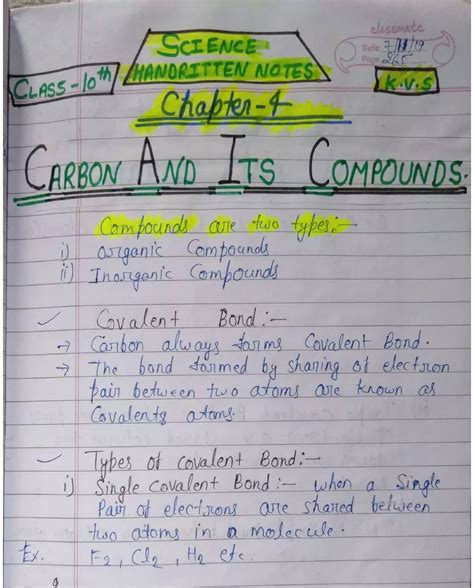 classmate
Date
Page
SCIENCE
HANDRITTEN NOTES
CLASS-10th
K.V.S
Chapter-4
CARBON AND ITS COMPOUNDS.
Compounds are two types:-
i) Organic Compounds
ii) Inorganic Compounds
✓ Covalent Bond:-
→ Carbon always forms Covalent Bond.
→ The bond formed by sharing of electron
pair between two atoms are known as
Covalents atoms.
✓ Types of covalent Bond:-
i) Single Covalent Bond:- when a Single
Pair of electrons are shared between
two atoms in a molecule.
Ex. F2, Cl2, H2 etc.